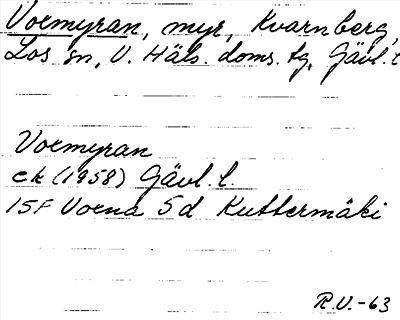 Voemyran, myr, Kvarnberg,
Los sn, V. Häls. doms. tg, Gävl. l
Voemyran
ek (1958) Gävl. l.
15F Voxna 5d Kuttermäki
R.V.-63